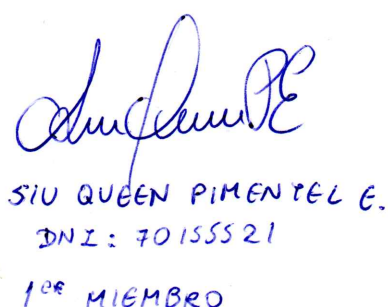 SIU QUEEN PIMENTEL E.
DNI: 70155521
1er MIEMBRO